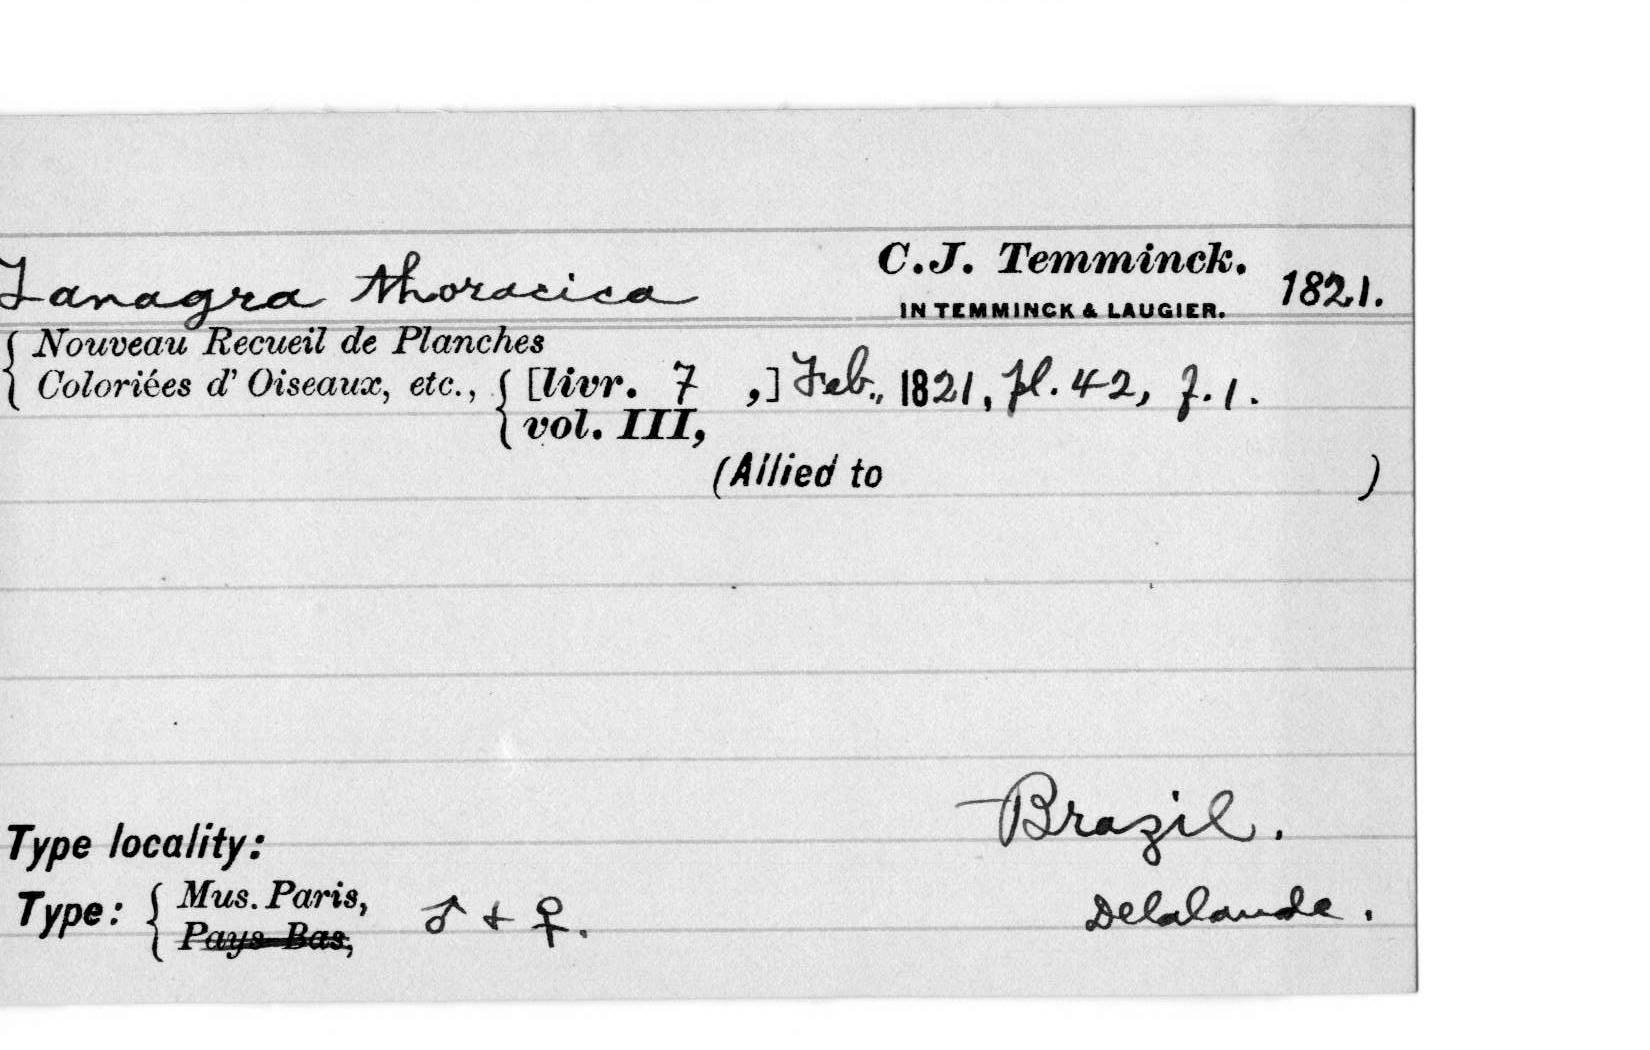 Tanagra thoracica C.J. Temminck. 1821.
IN TEMMINCK & LAUGIER.
{ Nouveau Recueil de Planches
Coloriées d' Oiseaux, etc., { [livr. 7 ,] Feb., 1821, pl. 42, f. 1.
vol. III,
(Allied to )
Brazil.
Type locality:
Type: { Mus. Paris, ♂ + ♀. Delalande.
Pays Bas,